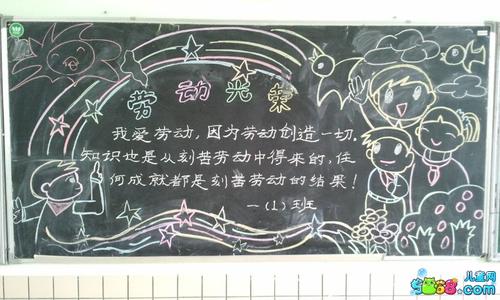 劳动光荣
我爱劳动，因为劳动创造一切，
知识也是从刻苦劳动中得来的，任
何成就都是刻苦劳动的结果！
一（1）班
儿童网
.com